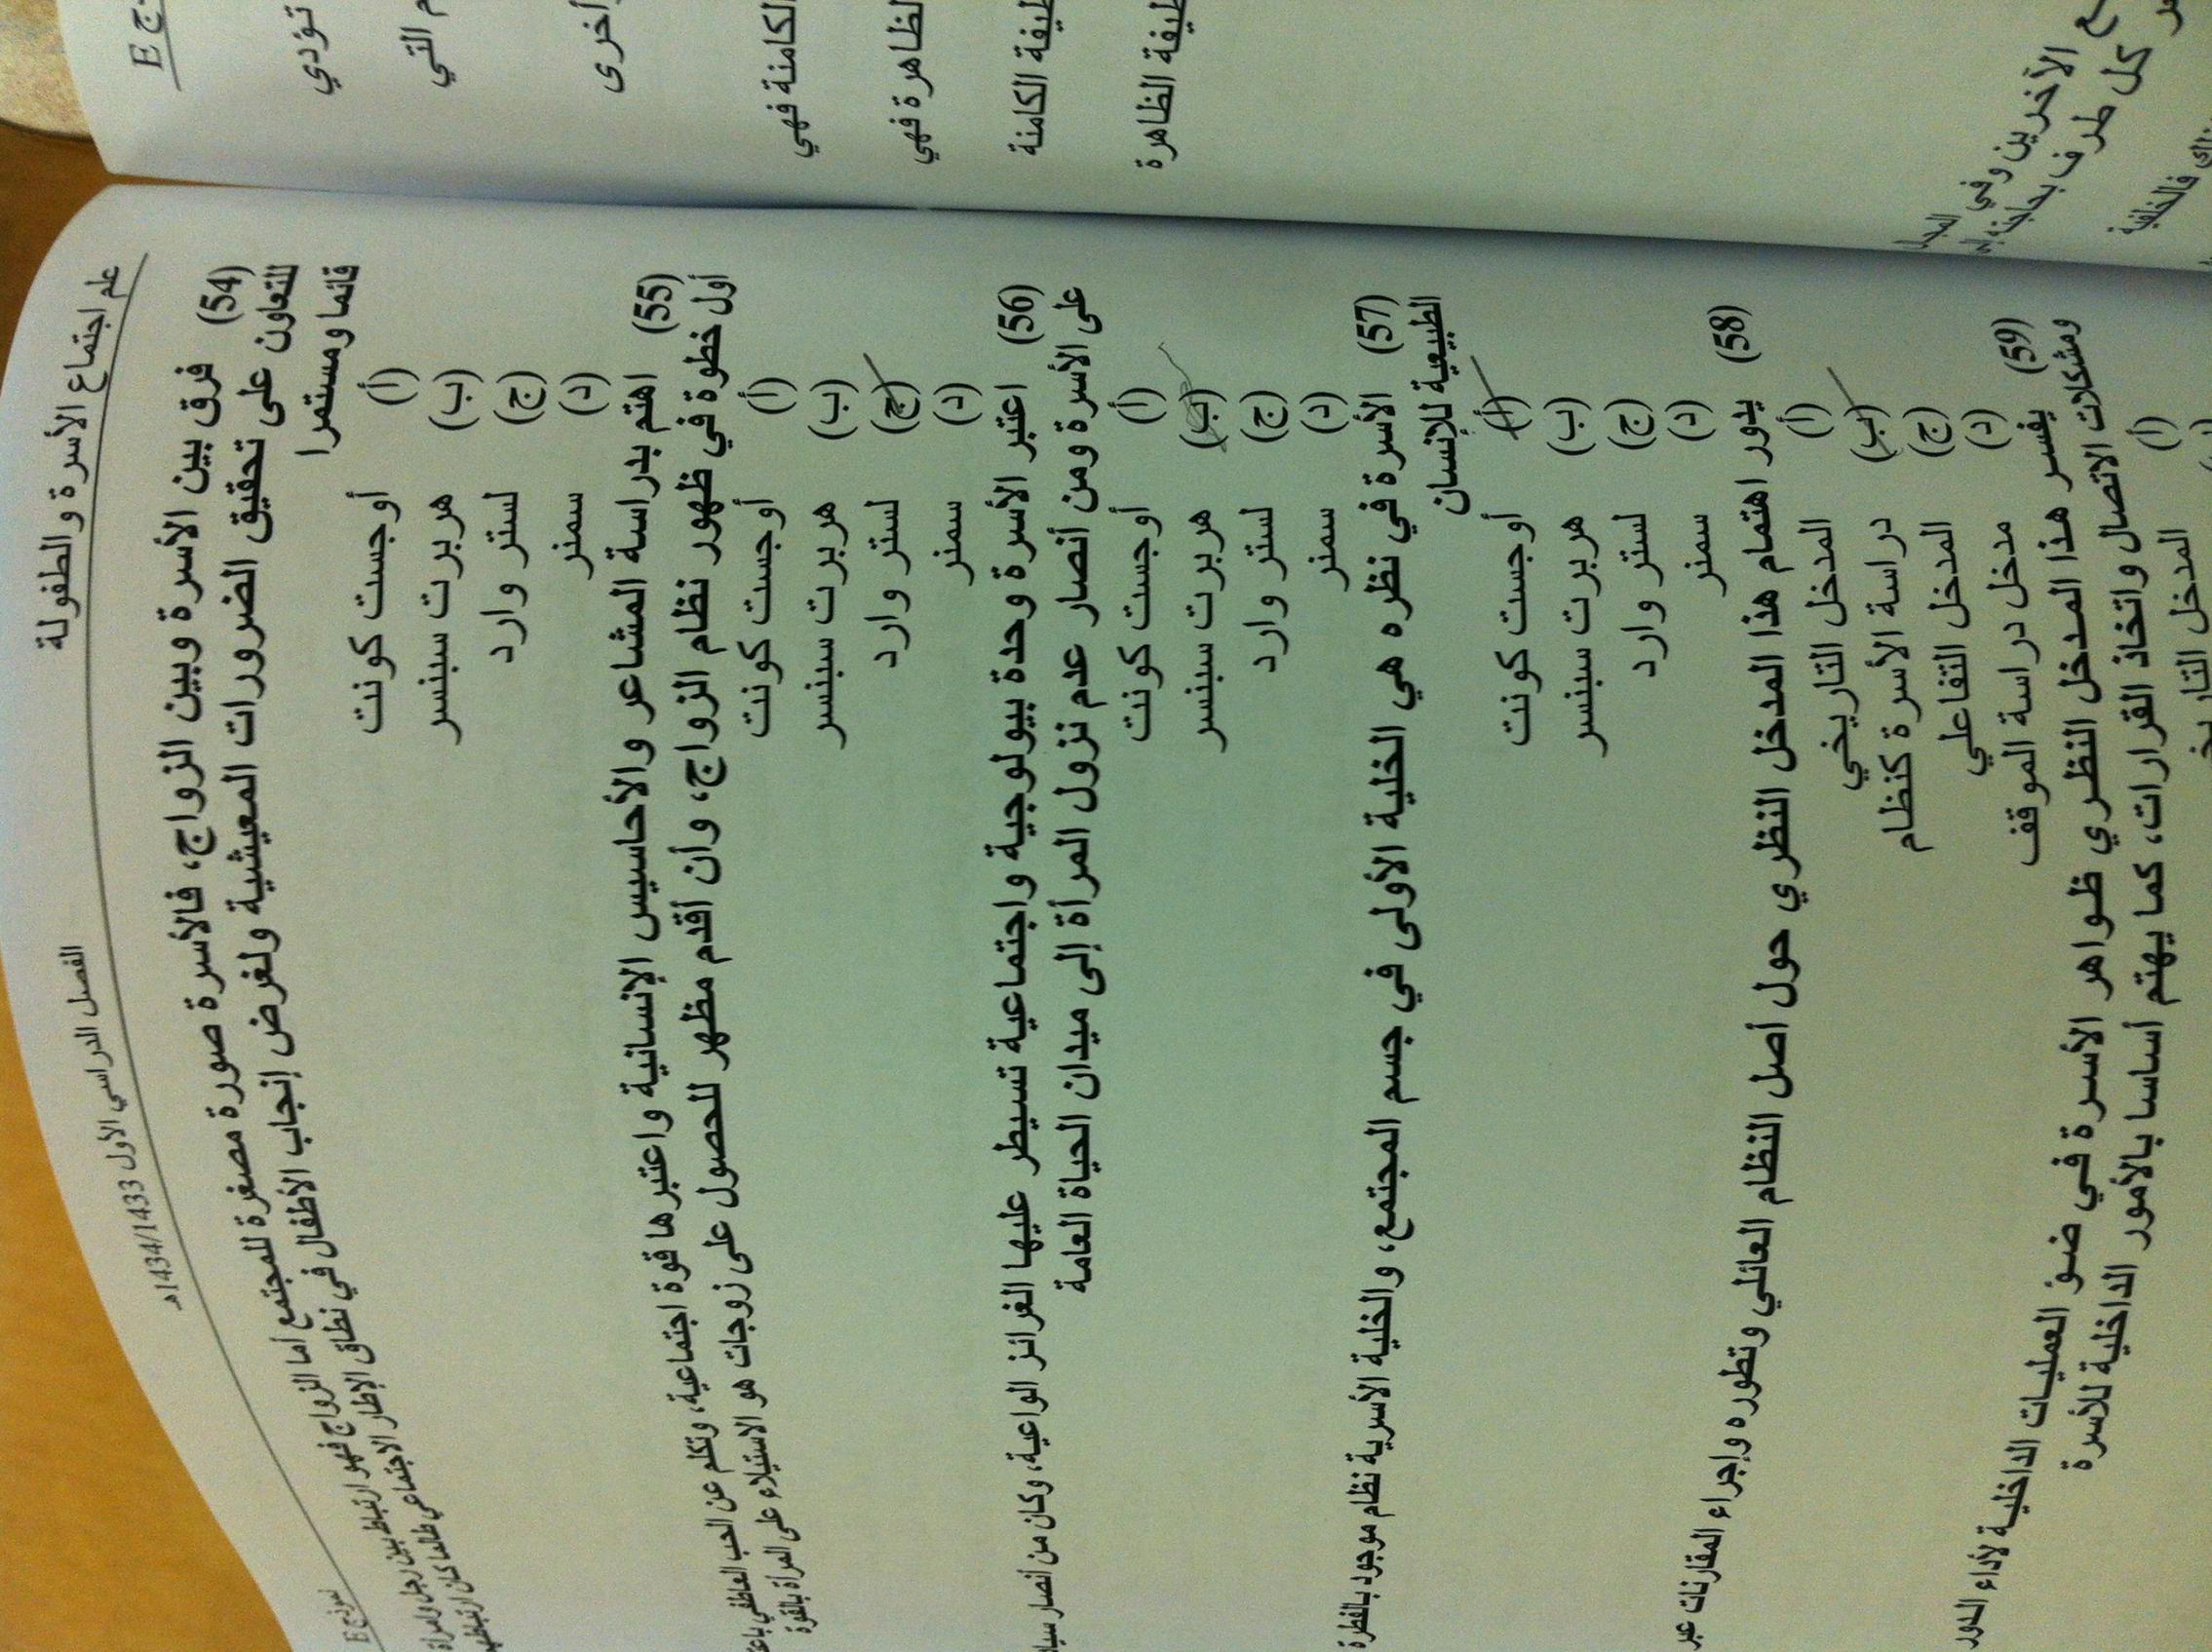 علم اجتماع الأسرة والطفولة
الفصل الدراسي الأول 1434/1433هـ
نموذج E
(54) فرق بين الأسرة وبين الزواج، فالأسرة صورة مصغرة للمجتمع أما الزواج فهو ارتباط بين رجل وامرأة
للتعاون على تحقيق الضرورات المعيشية ولغرض إنجاب الأطفال في نطاق الإطار الاجتماعي طالما كان
قائما ومستمرا
(أ) أوجست كونت
(ب) هربرت سبنسر
(ج) لستر وارد
(د) سمنر
(55) اهتم بدراسة المشاعر والأحاسيس الإنسانية واعتبرها قوة اجتماعية، وتكلم عن الحب العاطفي
أول خطوة في ظهور نظام الزواج، وأن أقدم مظهر للحصول على زوجات هو الاستيلاء على المرأة بالقوة
(أ) أوجست كونت
(ب) هربرت سبنسر
(ج) لستر وارد
(د) سمنر
(56) اعتبر الأسرة وحدة بيولوجية واجتماعية تسيطر عليها الغرائز الواعية، وكان من أنصار
على الأسرة ومن أنصار عدم نزول المرأة إلى ميدان الحياة العامة
(أ) أوجست كونت
(ب) هربرت سبنسر
(ج) لستر وارد
(د) سمنر
(57) الأسرة في نظره هي الخلية الأولى في جسم المجتمع، والخلية الأسرية نظام موجود بالفطرة
الطبيعية للإنسان
(أ) أوجست كونت
(ب) هربرت سبنسر
(ج) لستر وارد
(د) سمنر
(58) يدور اهتمام هذا المدخل النظري حول أصل النظام العائلي وتطوره وإجراء المقارنات عبر
(أ) المدخل التاريخي
(ب) دراسة الأسرة كنظام
(ج) المدخل التفاعلي
(د) مدخل دراسة الموقف
(59) يفسر هذا المدخل النظري ظواهر الأسرة في ضوء العمليات الداخلية لأداء الدور
ومشكلات الاتصال واتخاذ القرارات، كما يهتم أساسا بالأمور الداخلية للأسرة
(أ) المدخل التاريخي
ج E
تؤدي
م التي
أخرى
الكامنة فهي
لظاهرة فهي
ظيفة الكامنة
ظيفة الظاهرة
الآخرين وفي
كل طرف بحاجته